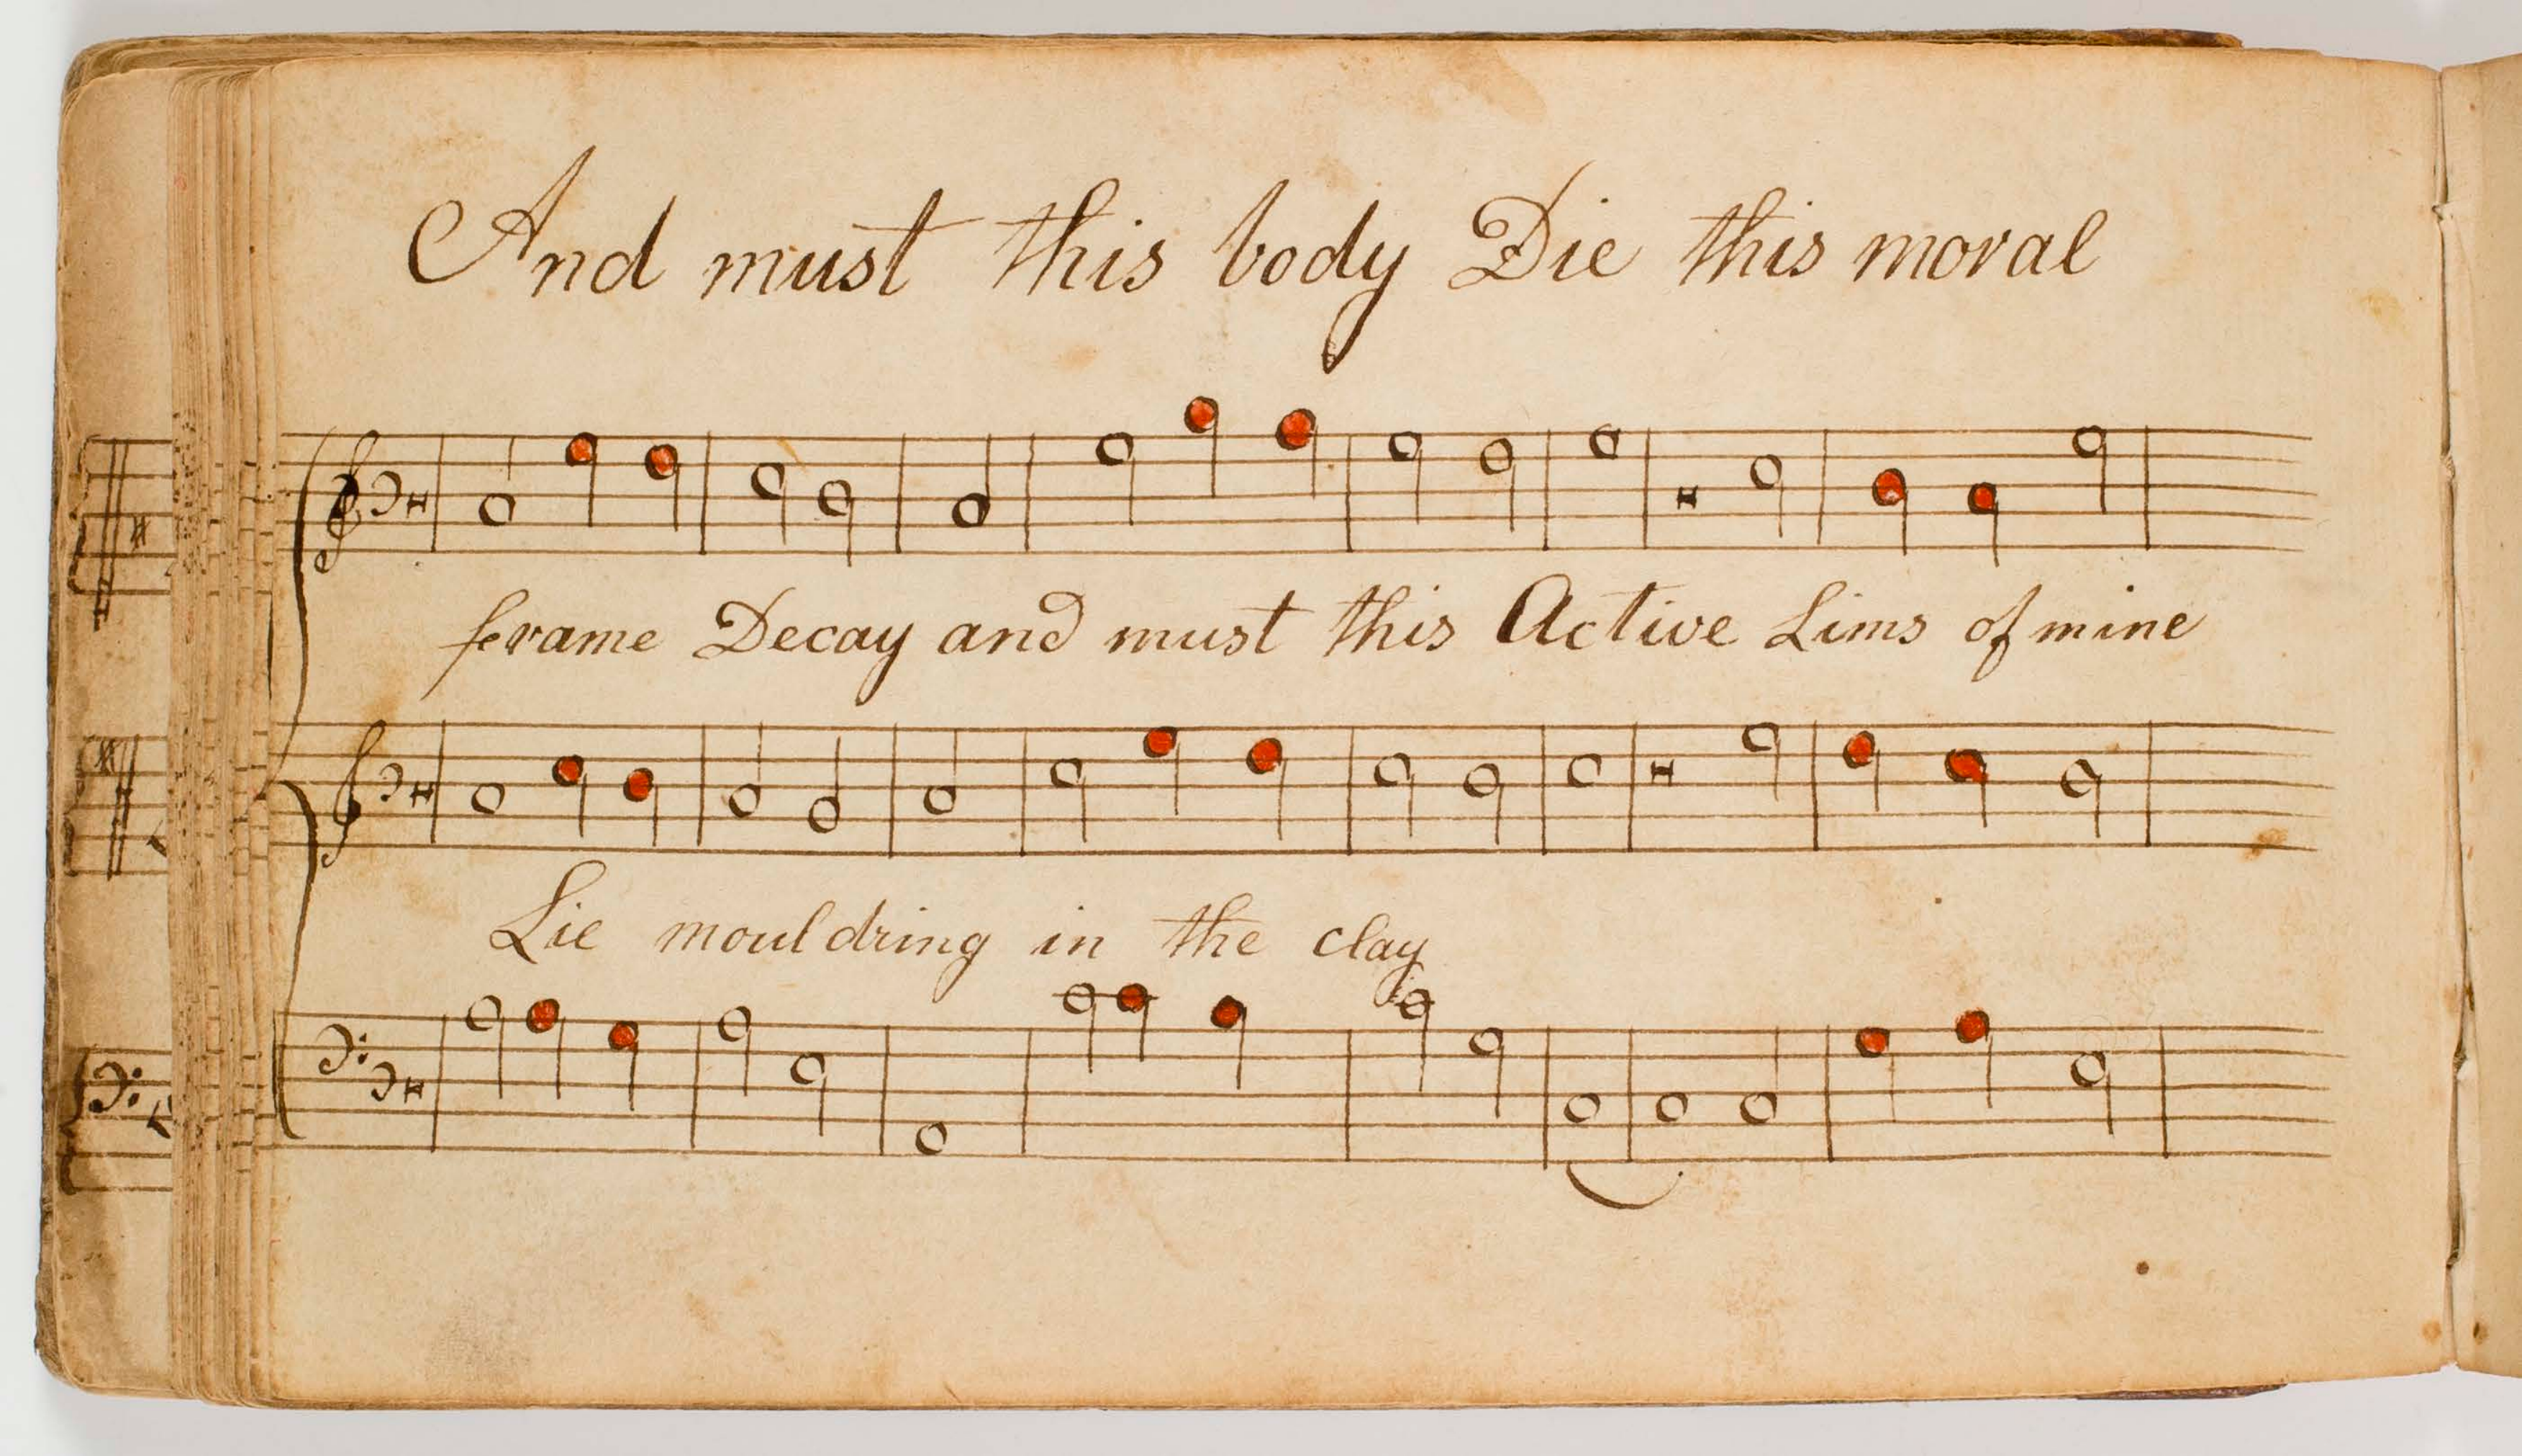 And must this body Die this moral
frame Decay and must this Active Lims of mine
Lie mouldring in the clay